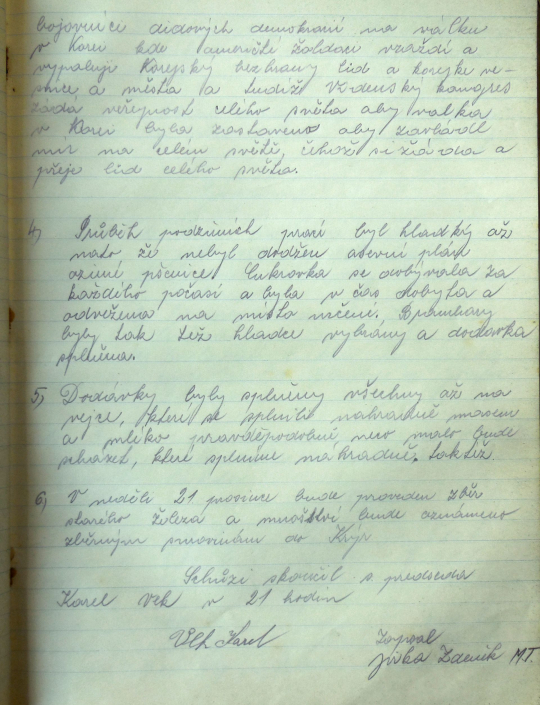 bojovníce lidových demokracií na válku
v Korei kde američtí žoldáci vraždí a
vypalují Korejský bezbraný lid a korejské ve-
snice a města a tudíž Vídeňský kongres
žádá veřejnost celého světa aby válka
v Korei byla zastavena aby zavládl
mír na celém světě, čehož si žádá a
přeje lid celého světa.
4) Průběh podzimních prací byl hladký až
nato že nebyl dodržen osevní plán
ozimé pšenice. Cukrovka se dobývala za
každého počasí a byla v čas dobyta a
odvežena na místa určení. Brambory
byly tak též hladce vybrány a dodávka
splněna.
5) Dodávky byly splněny všechny až na
vejce, které se splnily nahradně masem
a mléko pravděpodobně neco málo bude
scházet, které splníme náhradně, taktéž
6) V neděli 21 prosince bude proveden zběr
starého železa a množství bude oznámeno
zběrným surovinám do Kyjí
Schůzi skončil s. předseda
Karel Vlk v 21 hodin
Vlk Karel
Zapsal
Jirka Zdeněk M.T.